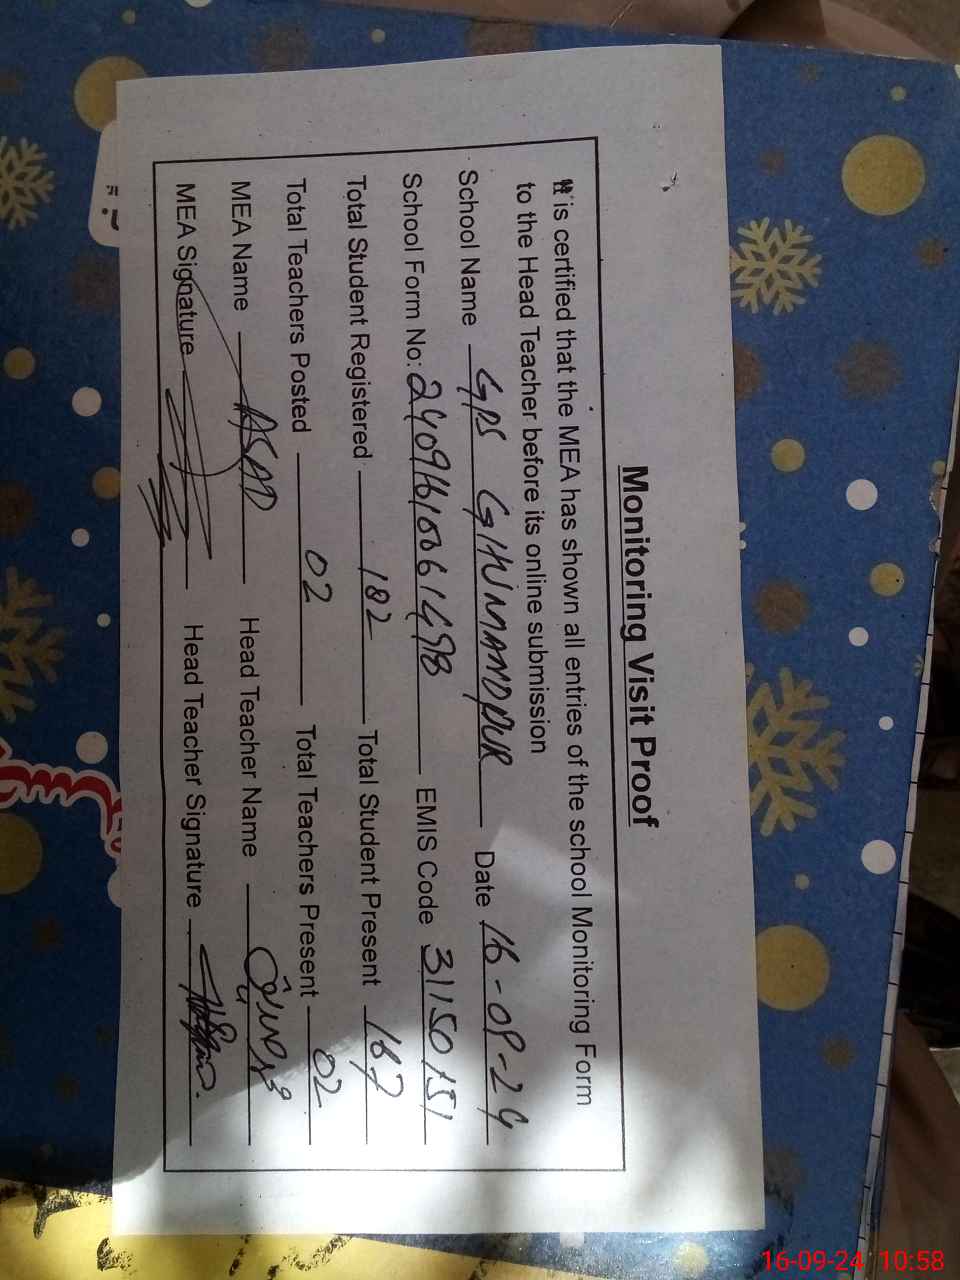 Monitoring Visit Proof
It is certified that the MEA has shown all entries of the school Monitoring Form
to the Head Teacher before its online submission
School Name GPS GHUMANDPUR Date 16-09-24
School Form No: EMIS Code 31150151
Total Student Registered 182 Total Student Present 167
Total Teachers Posted 02 Total Teachers Present 02
MEA Name ASAD Head Teacher Name
MEA Signature Head Teacher Signature
16-09-24 10:58